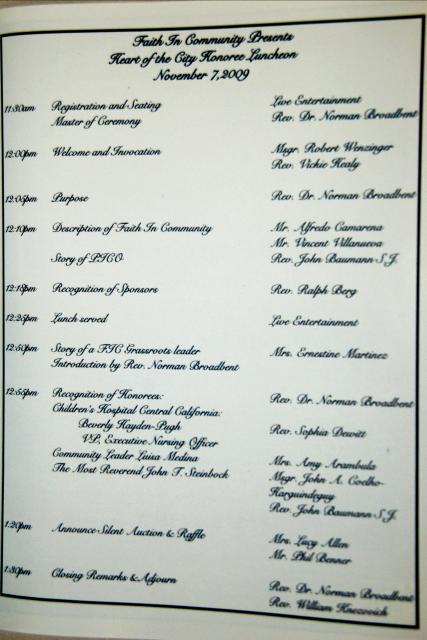 Faith In Community Presents
Heart of the City Honoree Luncheon
November 7, 2009
11:30am Registration and Seating Live Entertainment
Master of Ceremony Rev. Dr. Norman Broadbent
12:00pm Welcome and Invocation Msgr. Robert Wenzinger
Rev. Vickie Healy
12:05pm Purpose Rev. Dr. Norman Broadbent
12:10pm Description of Faith In Community Mr. Alfredo Camarena
Mr. Vincent Villanueva
Story of PICO Rev. John Baumann S.J.
12:18pm Recognition of Sponsors Rev. Ralph Berg
12:25pm Lunch served Live Entertainment
12:50pm Story of a FIC Grassroots leader Mrs. Ernestine Martinez
Introduction by Rev. Norman Broadbent
12:55pm Recognition of Honorees: Rev. Dr. Norman Broadbent
Children's Hospital Central California:
Beverly Hayden-Pugh Rev. Sophia Dewitt
VP, Executive Nursing Officer
Community Leader Luisa Medina Mrs. Amy Arambula
The Most Reverend John T. Steinbock Msgr. John A. Coelho-
Harguindeguy
Rev. John Baumann S.J.
1:20pm Announce Silent Auction & Raffle Mrs. Lucy Allen
Mr. Phil Benner
1:30pm Closing Remarks & Adjourn Rev. Dr. Norman Broadbent
Rev. William Knezovich